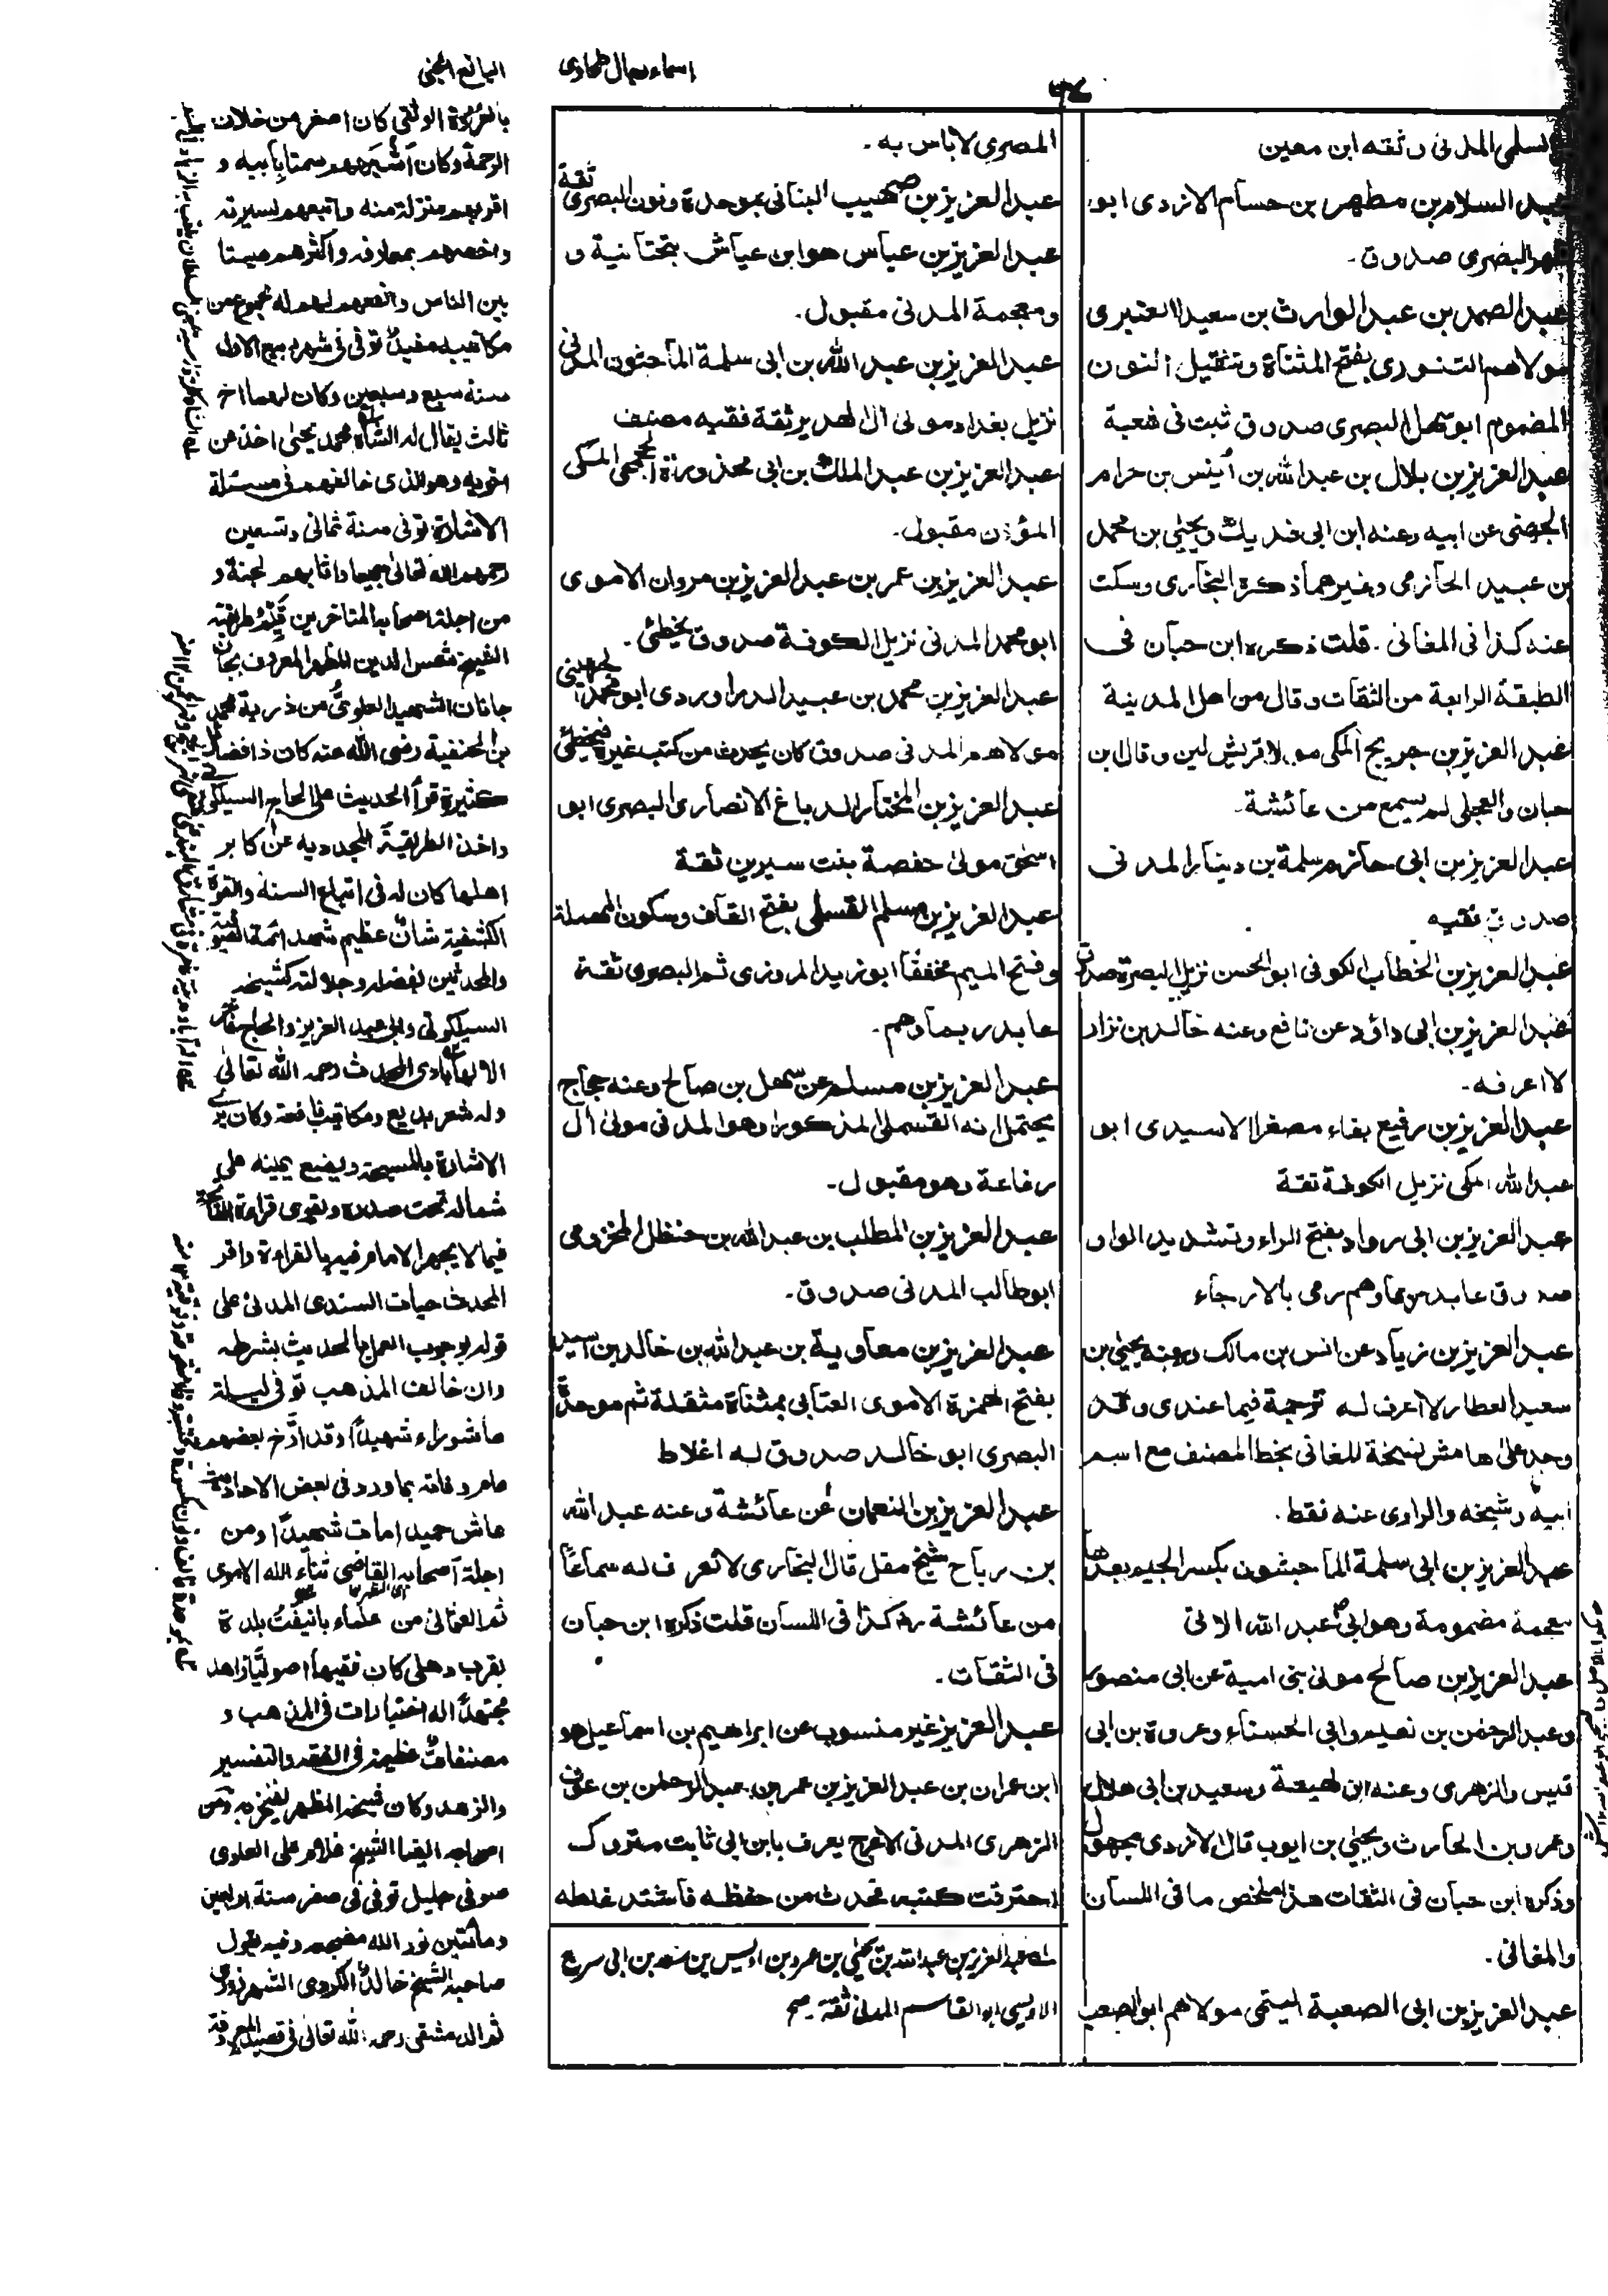 اسماء رجال طحاوى
اليانع الجنى
السلمى المدنى وثقه ابن معين
عبد السلام بن مطهر بن حسام الازدى ابو
البصرى صدوق۔
عبد الصمد بن عبد الوارث بن سعيد العنبرى
مولاهم التنورى بفتح المثناة وتثقيل النون
المضموم ابو سهل البصرى صدوق ثبت فى شعبة
عبد العزيز بن بلال بن عبد الله بن أنيس بن حرام
عن ابيه وعنه ابن ابى فديك ويحيى بن محمد
بن عبيد الحازمى وغيرهما ذكره البخارى وسكت
عنه كذا فى المغانى۔ قلت ذكره ابن حبان فى
الطبقة الرابعة من الثقات وقال من اهل المدينة
عبد العزيز بن جريج المكى مولا قريش لين وقال ابن
حبان والعجلى لم يسمع من عائشة۔
عبد العزيز بن ابى حازم سلمة بن دينار المدنى
صدوق فقيه
عبد العزيز بن الخطاب الكوفى ابو الحسن نزيل البصرة صدوق
عبد العزيز بن ابى داؤد عن نافع وعنه خالد بن نزار
لا اعرفه۔
عبد العزيز بن رفيع بفاء مصغرا الاسيدى ابو
عبد الله المكى نزيل الكوفة ثقة
عبد العزيز بن ابى رواد بفتح الراء وتشديد الواو
صدوق عابد ربما وهم رمى بالارجاء
عبد العزيز بن زياد عن انس بن مالك وعنه يحيى بن
سعيد العطار لا اعرف له ترجمة فيما عندى وقد
وجد على هامش نسخة للغانى بخط المصنف مع اسم
ابيه وشيخه والراوى عنه فقط۔
عبد العزيز بن ابى سلمة الماجشون بكسر الجيم بعدها
معجمة مضمومة وهو ابن عبد الله الاتى
عبد العزيز بن صالح مولى بنى امية عن ابى منصور
وعبد الرحمن بن نعيم وابى الحسناء وعروة بن ابى
قيس والزهرى وعنه ابن لهيعة وسعيد بن ابى هلال
وعمرو بن الحارث ويحيى بن ايوب قال الازدى مجهول
وذكره ابن حبان فى الثقات هذا ملخص ما فى اللسان
والمغانى۔
عبد العزيز بن ابى الصعبة التيمى مولاهم ابو الصعب
المصرى لا باس به۔
عبد العزيز بن صهيب البنانى بموحدة ونون البصرى ثقة
عبد العزيز بن عياس هو ابن عياش بتحتانية و
ومعجمة المدنى مقبول۔
عبد العزيز بن عبد الله بن ابى سلمة الماجشون المدنى
نزيل بغداد مولى ال الهدير ثقة فقيه مصنف
عبد العزيز بن عبد الملك بن ابى محذورة الجمحى المكى
المؤذن مقبول۔
عبد العزيز بن عمر بن عبد العزيز بن مروان الاموى
ابو محمد المدنى نزيل الكوفة صدوق يخطئ۔
عبد العزيز بن محمد بن عبيد الدراوردى ابو محمد الجهنى
مولاهم المدنى صدوق كان يحدث من كتب غيره فيخطئ
عبد العزيز بن المختار الدباغ الانصارى البصرى ابو
اسحق مولى حفصة بنت سيرين ثقة
عبد العزيز بن مسلم القسملى بفتح القاف وسكون المهملة
وفتح الميم مخففا ابو زيد المروزى ثم البصرى ثقة
عابد ربما وهم۔
عبد العزيز بن مسلم عن سهل بن صالح وعنه حجاج
يحتمل انه القسملى المذكور او هو المدنى مولى ال
رفاعة وهو مقبول۔
عبد العزيز بن المطلب بن عبد الله بن حنظل المخزومى
ابو طالب المدنى صدوق۔
عبد العزيز بن معاوية بن عبد الله بن خالد بن اسيد
بفتح الهمزة الاموى العتابى بمثناة مثقلة ثم موحدة
البصرى ابو خالد صدوق له اغلاط
عبد العزيز بن النعمان عن عائشة وعنه عبد الله
بن رباح شيخ مقل قال البخارى لا نعرف له سماعا
من عائشة رض كذا فى اللسان قلت ذكره ابن حبان
فى الثقات۔
عبد العزيز غير منسوب عن ابراهيم بن اسماعيل هو
ابن عمران بن عبد العزيز بن عمر بن عبد الرحمن بن عوف
الزهرى المدنى الاعرج يعرف بابن ابى ثابت متروك
احترقت كتبه فحدث من حفظه فاشتد غلطه
عبد العزيز بن عبد الله بن يحيى بن عمرو بن اويس بن سعد بن ابى سرح
الاويسى ابو القاسم المدنى ثقة۔ صح
بالعروة الوثقى كان اصغر من خلان
الرحمة وكان اشبههم سمتا بابيه و
اقربهم منزلة منه واتبعهم لسيرته
واخصهم بمعارفه واكثرهم صيتا
بين الناس وانفعهم لهم له مجموع من
مكاتيبه مفيد توفى فى شهر ربيع الاول
سنة سبع وسبعين وكان لهما اخ
ثالث يقال له الشاه محمد يحيى اخذ من
اخويه وهو الذى خالفهم فى مسئلة
الاشارة توفى سنة ثمانى وتسعين
رحمهم الله تعالى جميعا واثابهم الجنة و
من اجلة اصحابه المتاخرين طريقته
الشيخ شمس الدين المظهر المعروف بجان
جانان الشهيد العلوى من ذرية محمد
بن الحنفية رضى الله عنه كان ذا فضائل
كثيرة قرأ الحديث على الحاج السيالكوتى
واخذ الطريقة المجددية عن اكابر
اهلها كان له فى اتباع السنة والقوة
الكشفية شان عظيم شهد ائمة الصوفية
والمحدثين بفضله وجلالته كشيخه
السيالكوتى وابى عبد العزيز والحاج فاخر
الالهابادى المحدث رحمه الله تعالى
وله شعر بديع ومكاتيب نافعة وكان يرى
الاشارة بالمسبحة ويضع يمينه على
شماله تحت صدره ويقوى قراءة الفاتحة
فيما لا يجهر الامام فيه بالقراءة واقر
المحدث حيات السندى المدنى على
قوله بوجوب العمل بالحديث بشرطه
وان خالف المذهب توفى ليلة
عاشوراء شهيدا وقد ارخ بعضهم
عام وفاته بما ورد فى بعض الاحاديث
عاش حميدا مات شهيدا ومن
اجلة اصحابه القاضى ثناء الله الاموى
ثم العثمانى من علماء بانيفت بلدة
بقرب دهلى كان فقيها اصوليا زاهدا
مجتهدا له اختيارات فى المذهب و
مصنفات عظيمة فى الفقه والتفسير
والزهد وكان شيخه المظهر يفتخر به ومن
اصحابه ايضا الشيخ غلام على العلوى
صوفى جليل توفى فى صفر سنة اربعين
ومائتين نور الله مضجعه وفيه يقول
صاحبه الشيخ خالد الكردى الشهرزورى
ثم الدمشقى رحمه الله تعالى فى قصيدة